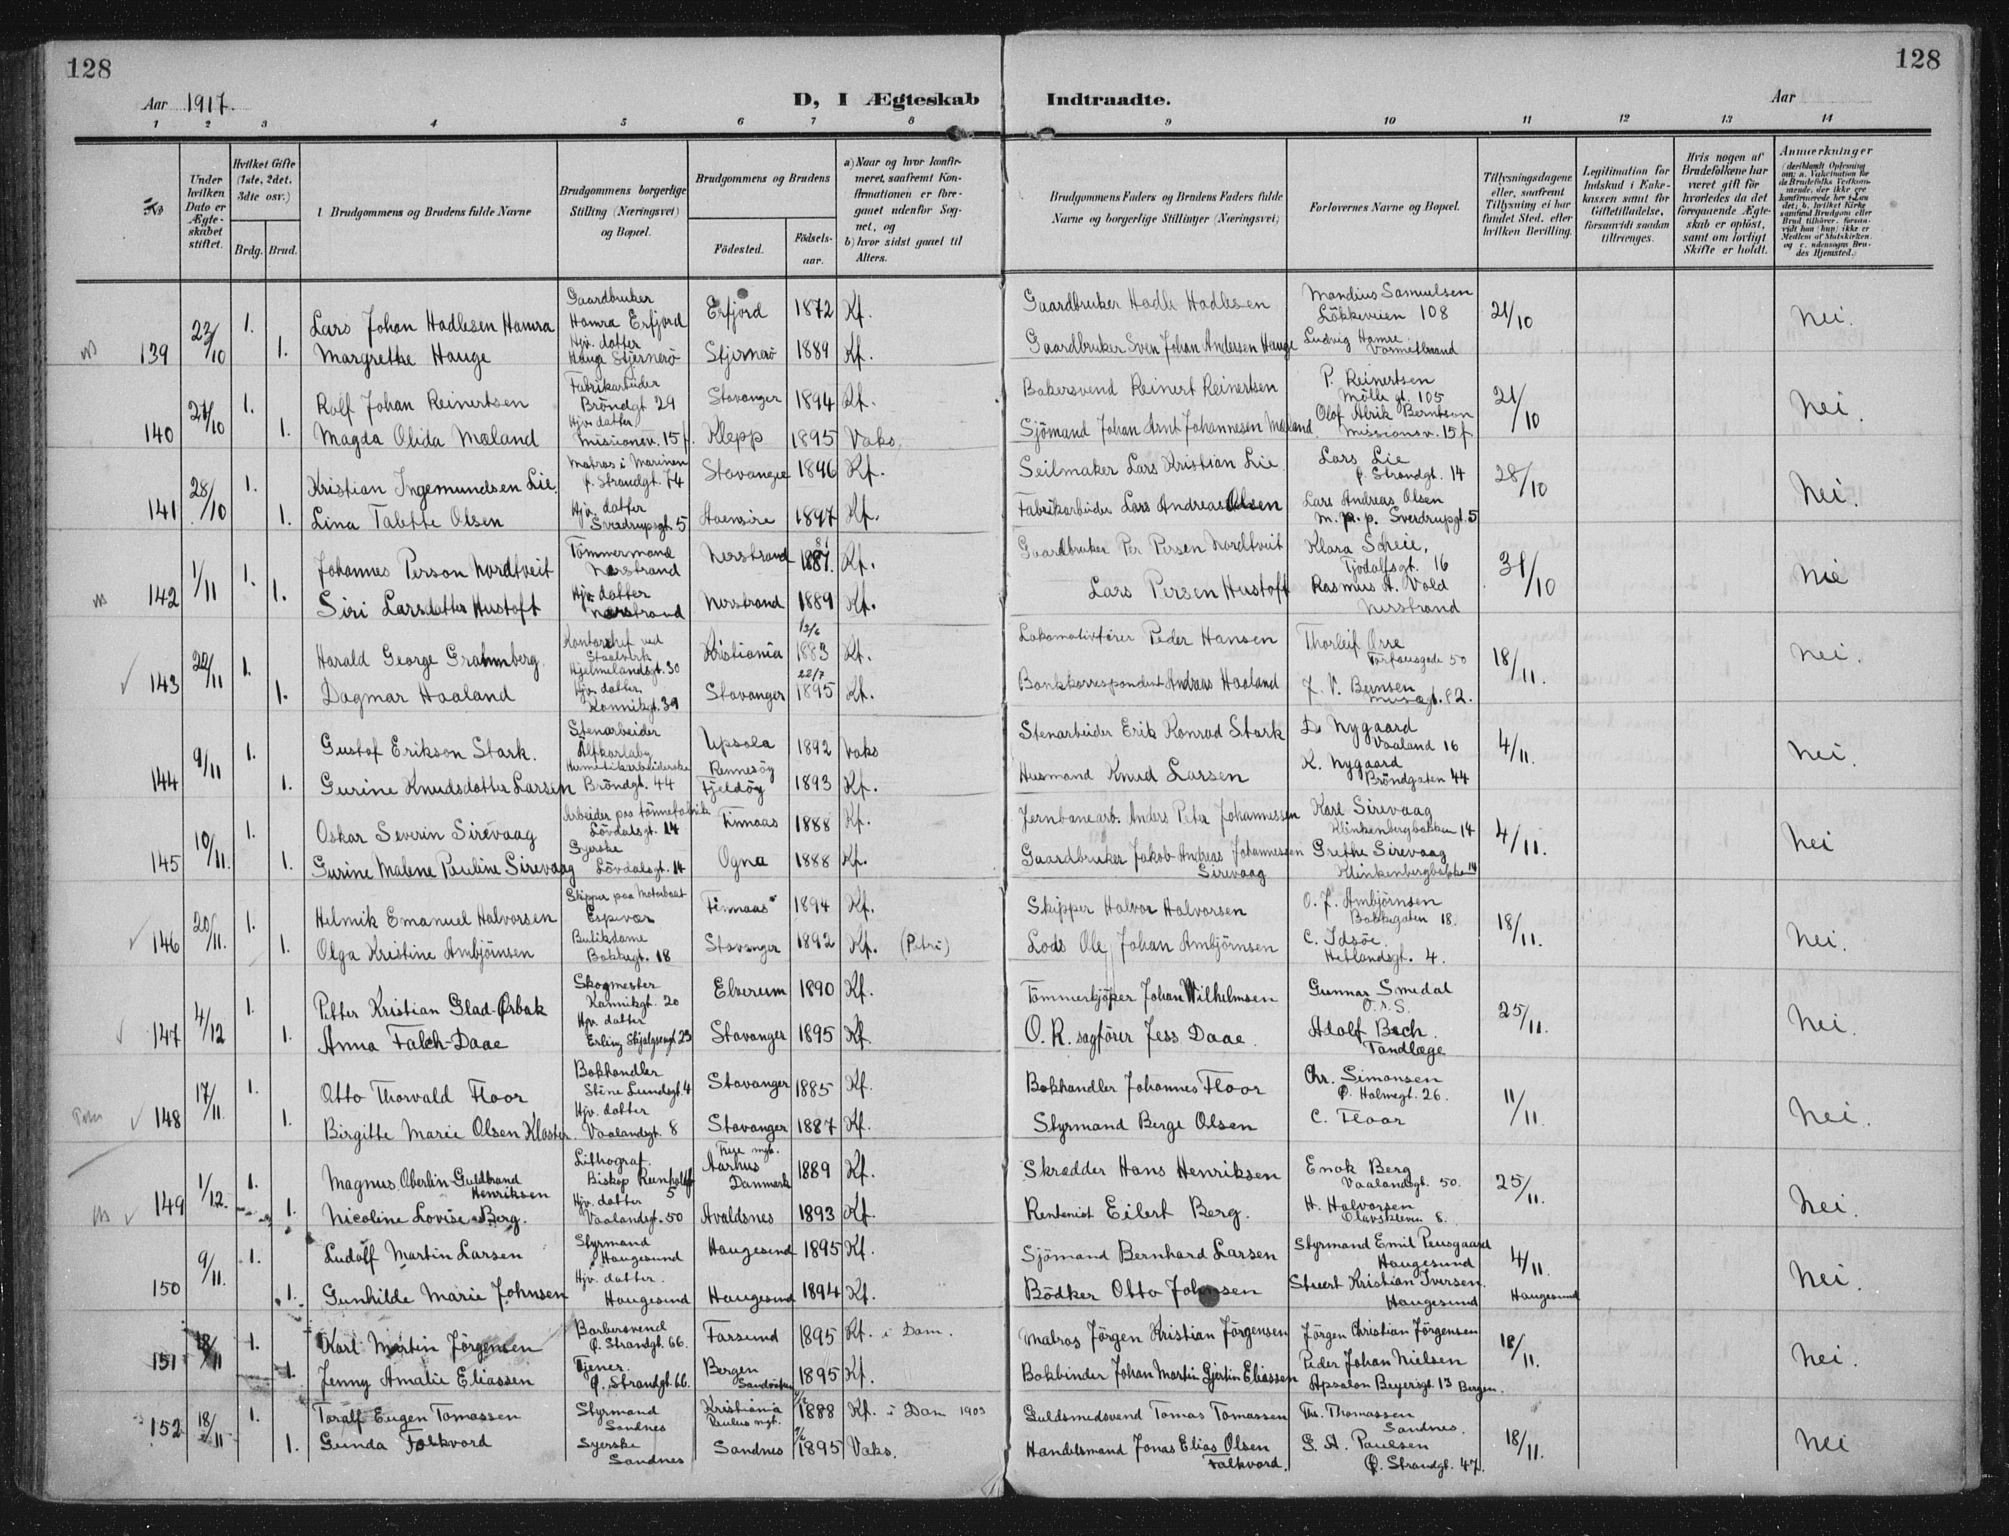 128
128
Aar 1917.
D, I Ægteskab Indtraadte.
Aar
1 2 3 4 5 6 7 8 9 10 11 12 13 14
No
Under hvilken Dato er Ægteskabet stiftet.
Hvilket Gifte (1ste, 2det, 3dte osv.)
Brdg. Brud.
Brudgommens og Brudens fulde Navne
Brudgommens borgerlige Stilling (Næringsvei) og Bopæl.
Brudgommens og Brudens
Fødested. Fødsels-aar.
a) Naar og hvor konfirmeret, saafremt Konfirmationen er foregaaet udenfor Sognet, og
b) hvor sidst gaaet til Alters.
Brudgommens Faders og Brudens Faders fulde Navne og borgerlige Stillinger (Næringsvei)
Forlovernes Navne og Bopæl.
Tillysningsdagene eller, saafremt Tillysning ei har fundet Sted, efter hvilken Bevilling.
Legitimation for Indskud i Enkekassen samt for Giftetilladelse, forsaavidt saadan tiltrænges.
Hvis nogen af Brudefolkene har været gift før hvorledes da det foregaaende Ægteskab er opløst, samt om lovligt Skifte er holdt.
Anmærkninger
139 23/10 1. Lars Johan Hadlesen Hamra Gaardbruker Hamra Erfjord Erfjord 1872 Kf. Gaardbruker Hadle Hadlesen Mandius Samuelsen Løkkeveien 108 21/10 Nei.
1. Margrethe Hauge Hjv. datter Hauge Stjernerö Stjernerö 1889 Kf. Gaardbruker Sven Johan Andersen Hauge Ludvig Hamre
140 21/10 1. Rolf Johan Reinertsen Fabrikarbeider Bröndgt 29 Stavanger 1894 Kf. Bakersvend Reinert Reinertsen P. Reinertsen Mölle gt. 105 21/10 Nei.
1. Magda Olida Mæland Hjv. datter Misionsv. 15f. Klepp 1895 Vaks. Sjömand Johan Arnt Johannesen Mæland Olaf Alrik Berntson Missionsv. 15f
141 28/10 1. Kristian Ingemundsen Lie. Matros i Marinen Ö. Strandgt. 74 Stavanger 1896 Kf. Seilmaker Lars Kristian Lie Lars Lie Ö. Strandgt. 14 28/10 Nei.
1. Lina Talette Olsen Hjv. datter Sverdrupsgt. 5 1897 Kf. Fabrikarbeider Lars Andreas Olsen Lars Andreas Olsen m. p. p. Sverdrupgt. 5
142 1/11 1. Johannes Person Nordtveit Tömmermand Nerstrand Nerstrand 1881. Kf. Gaardbruker Per Persen Nordtveit Klara Scheie, Tjodolfsgt. 16 31/10 Nie
1. Siri Larsdatter Hustoft Hjv. datter Nerstrand Nerstrand 1889 Kf. Lars Persen Hustoft Rasmus A. Vold Nerstrand
143 22/11 1. Harald George Grahmberg. Kontorchef ved Staalverk Hjelmelandsgt. 30 Kristiania 13/6 1883 Kf. Lokomotivfører Peder Hansen Thorleif Orre 50 18/11. Nei.
1. Dagmar Haaland Hjv. datter Kannikgt. 39 Stavanger 22/7 1895 Kf. Bankkorrespondent Andreas Haaland Musægt. 82.
144 9/11 1. Gustaf Erikson Stark. Stenarbeider Älfkarlaby Upsala 1892 Vaks Stenarbeider Erik Konrad Stark D. Nygaard Vaaland 16 4/11. Nei.
1. Gurine Knudsdatter Larsen Hermetikarbeiderske Bröndgt. 44 Rennesöy Fjeldöy 1893 Kf. Husmand Knud Larsen K. Nygaard Bröndgaten 44
145 10/11. 1. Oskar Severin Sirevaag Arbeider paa tönnefabrik Lövdalsgt. 14 Finnaas 1888 Kf. Jernbanearb. Anders Peter Johannessen Karl Sirevaag Klinkenbergbakken 14 4/11. Nei
1. Gurine Malene Pauline Sirevaag Syerske Lövdalsgt. 14 Ogna 1888 Kf. Gaardbruker Jakob Andreas Johannessen Sirevaag Grethe Sirevaag Klinkenbergbakken 14
146 20/11. 1. Helmik Emanuel Halvorsen Skipper paa Motorbaat Espevær Finnaas 1894 Kf. Skipper Halvor Halvorsen O. J. Ambjörnsen Bakkegaten 18. 18/11. Nei.
1. Olga Kristine Ambjörnsen Butikdame Bakkegt. 18 Stavanger 1892 Kf. (Petri) Lods Ole Johan Ambjörnsen C. Idsöe, Hetlandsgt. 4.
147 4/12 1. Petter Kristian Glad-Ørbak Skogmester Kannikgt. 20 Elverum 1890 Kf. Tömmerkjöper Johan Wilhelmsen Gunnar Smedal O.r.S. 25/11. Nei.
1. Anna Falch-Daae Hjv. datter Erling Skjalgsøngt 23 Stavanger 1895 Kf. O. R. sagfører Jess Daae. Adolf Bech. Tandlæge
148 17/11. 1. Otto Thorvald Floor Bokhandler Stine Lundsgt. 4 Stavanger 1885 Kf. Bokhandler Johannes Floor Chr. Simonsen Ö. Holmegt. 26. 11/11. Nei.
1. Birgitte Marie Olsen Kloster. Hjv. datter Vaalandsgt. 8 Stavanger 1887 Kf. Styrmand Berge Olsen C. Floor
149 1/12. 1. Magnus Oberlin Guldbrand Henriksen Lithograf. Biskop Reinholdgt 5 Aarhus Danmark 1889 Kf. Skrædder Hans Henriksen Enok Berg Vaalandsgt. 50. 25/11. Nei.
1. Nicoline Lovise Berg. Hjv. datter Vaalandsgt. 50 Avaldsnes 1893 Kf. Rentenist Eilert Berg. H. Halvorsen Olavskleven 8.
150 9/11. 1. Ludolf Martin Larsen Styrmand Haugesund Haugesund 1895 Kf. Sjömand Bernhard Larsen Styrmand Emil Haugesund 4/11. Nei.
1. Gunhilde Marie Johnsen Hjv. datter. Haugesund Haugesund 1894 Kf. Bödker Otto Johnsen Stuert Kristian Iversen. Haugesund Haugesund
151 18/11 1. Karl Martin Jörgensen Barbersvend Ö. Strandgt. 66. Farsund 1895 Kf. i Dom. Matros Jörgen Kristian Jörgensen Jörgen Christian Jörgensen 18/11. Nei.
1. Jenny Amalie Eliassen Tjener. Ö. Strandgt. 66. Bergen Sandviken 1895 Kf. Bokbinder Johan Martin Gjertin Eliassen Peder Johan Nielsen Apsalon Beyersgt. 13 Bergen.
152 18/11 1. Toralf Eugen Tomassen Styrmand Sandnes Kristiania Paulus mgt. 1888 Kf. i Dom 1903 Guldsmedsvend Tomas Tomassen Ths. Thomassen Sandnes. 18/11. Nei
1. Gunda Folkvord Syerske Sandnes Sandnes 1895 Vaks. Handelsmand Jonas Elias Olsen Falkvord. S. A. Paulsen Ö. Strandgt. 47.